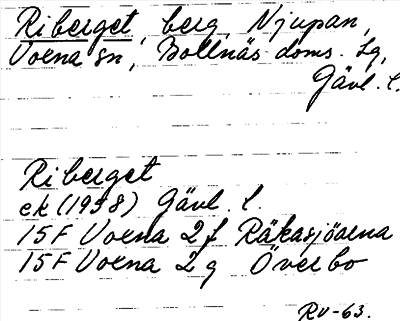 Riberget, berg, Njupan,
Voxna sn, Bollnäs doms. sg,
Gävl. l.
Riberget
ek (1958) Gävl. l.
15F Voxna 2f Räkasjöarna
15F Voxna 2g Överbo
RV-63.